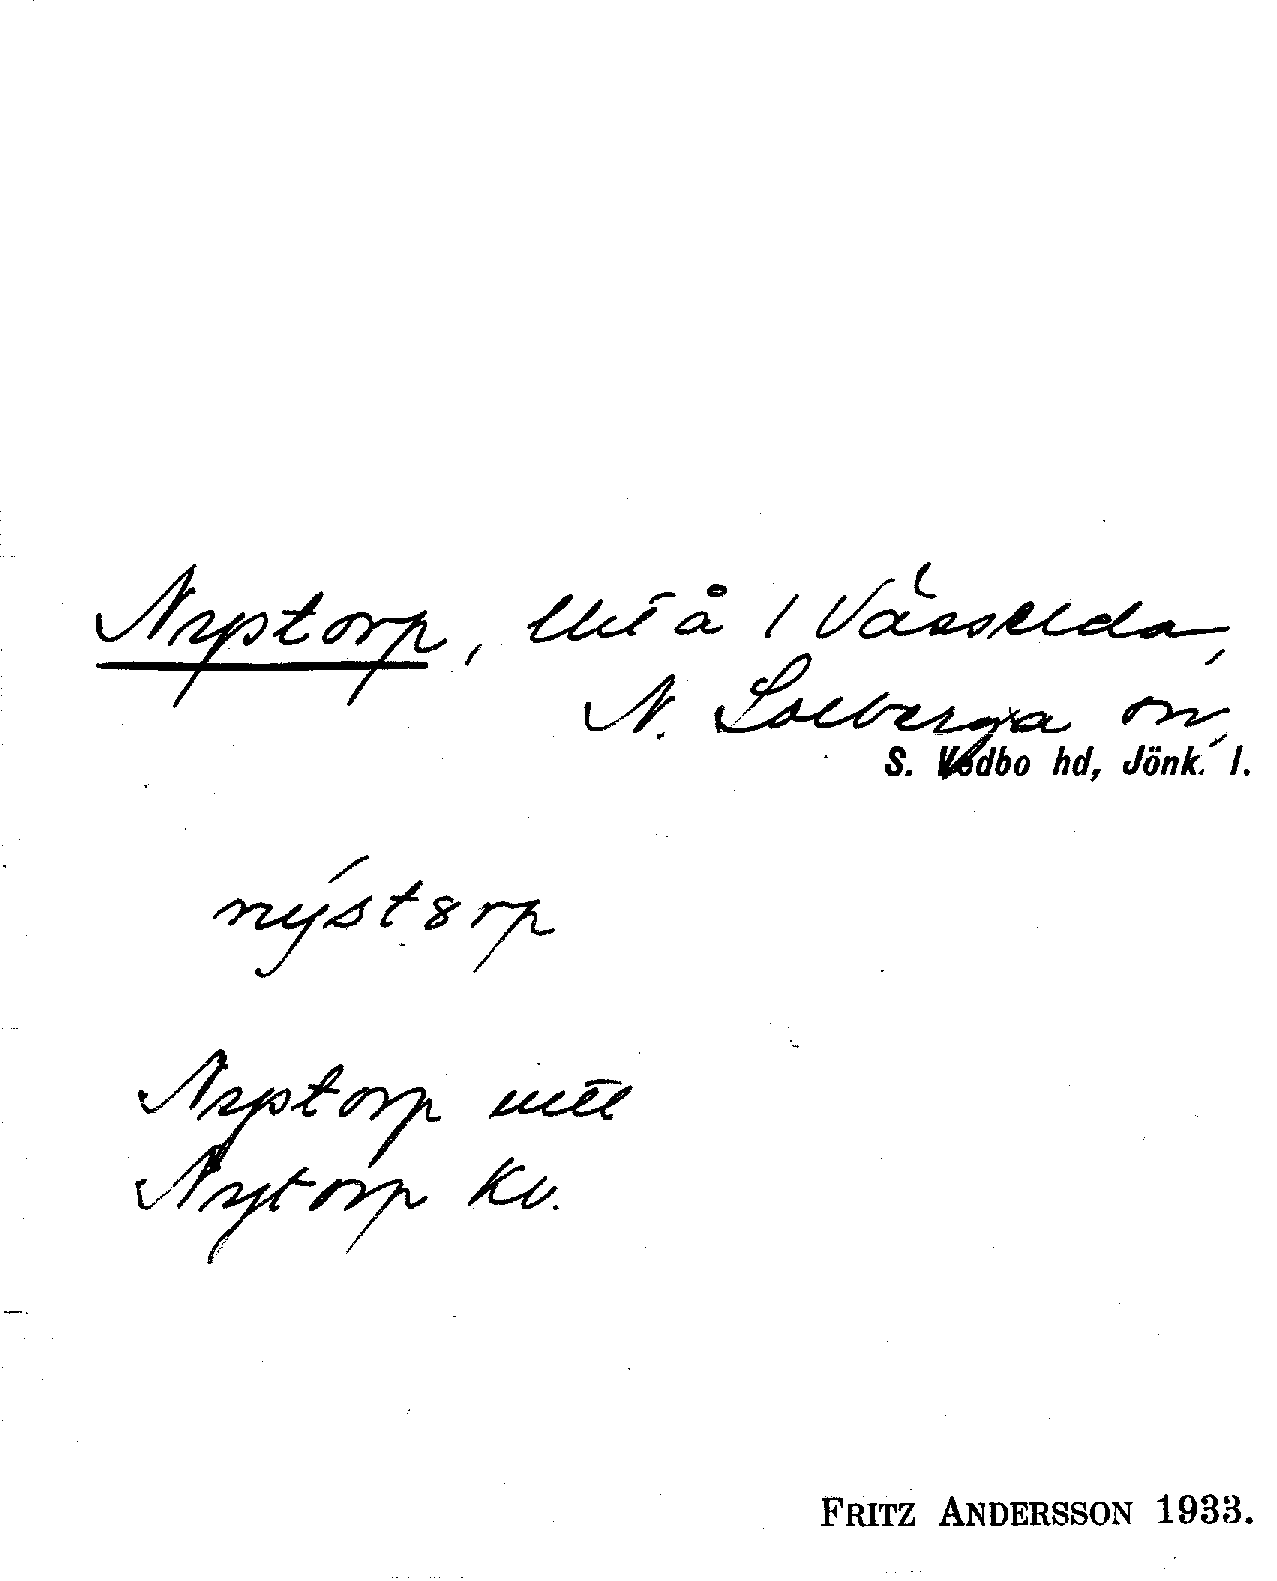 Nystorp, lht å 1 Vässlelda,
N. Solberga sn,
S. Vedbo hd, Jönk. l.
nýst8rp
Nystorp
Nytorp Kv.
FRITZ ANDERSSON 1933.